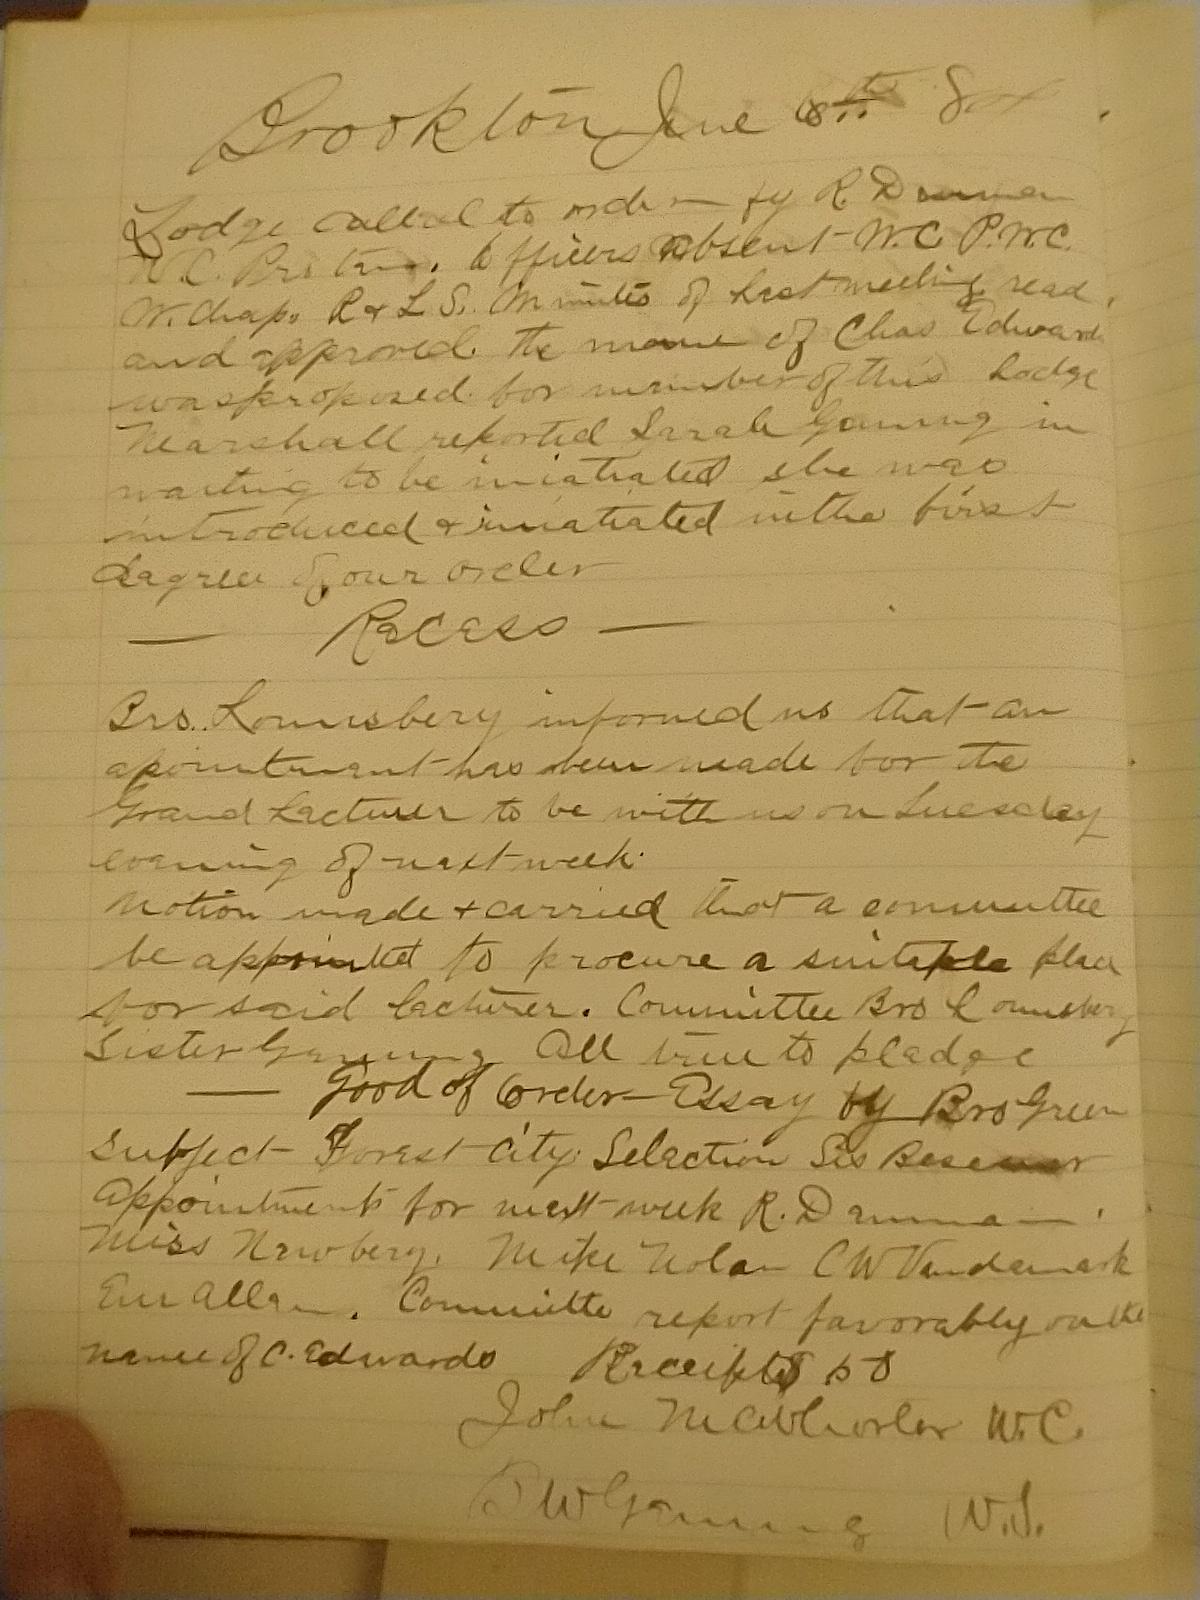 Brookton June 8th
Lodge called to order by R. Denman
W.C. Pro tem. Officers absent W.C. P.W.C.
W. Chap. R & L S. Minutes of last meeting read
and approved. The name of Chas Edwards
was proposed for member of this Lodge
Marshall reported Sarah Gaming in
waiting to be iniatiated she was
introduced & iniatiated in the first
dagree of our order
— Recess —
Bro. Lounsbery informed us that an
apointment has been made for the
Grand Lecturer to be with us on Tuesday
evening of next week.
Motion made & carried that a committee
be appointed to procure a suitable place
for said lecturer. Committee Bro Lounsbery
Sister Gaming All true to pledge
— Good of Order — Essay by Bro Green
Subject — Forest City. Selection Sis
Appointments for next week R. Denman.
Miss Newbery. Mike Nolan C W Vandemark
Em Allen. Committe report favorably on the
name of C. Edwards Receipts
John McWhorter W.C.
W Gaming W.S.